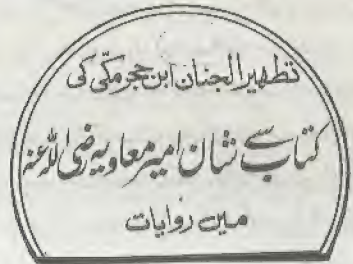 تطہیر الجنان ابن حجر مکّی کی
کتاب سے شان امیر معاویہ رضی اللہ عنہ
میں روایات